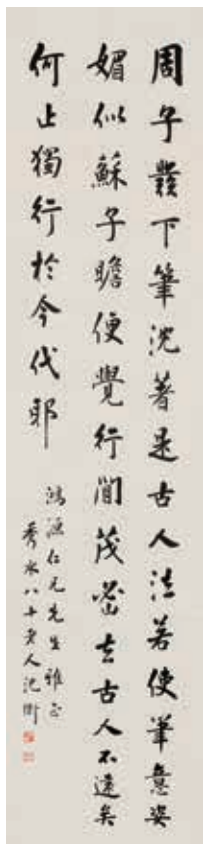 周子發下筆沈著是古人法若使筆意姿
媚似蘇子瞻便覺行間茂密去古人不遠矣
何止獨行於今代耶
鴻源仁兄先生雅正
秀水八十老人沈衛